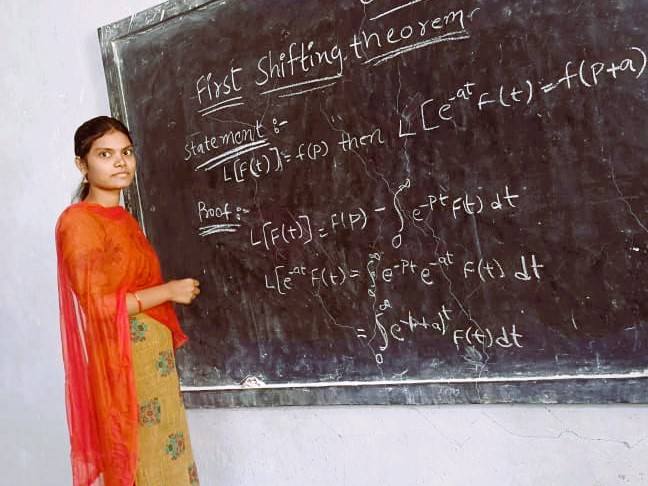 First Shifting theorem
Statement :-
L[F(t)] = f(p) then L[e^-at F(t) = f(p+a)
Proof :-
L[F(t)] = F(p) - ∫₀^∞ e^-pt F(t) dt
L[e^-at F(t) = ∫₀^∞ e^-pt e^-at F(t) dt
= ∫₀^∞ e^-(p+a)t F(t) dt